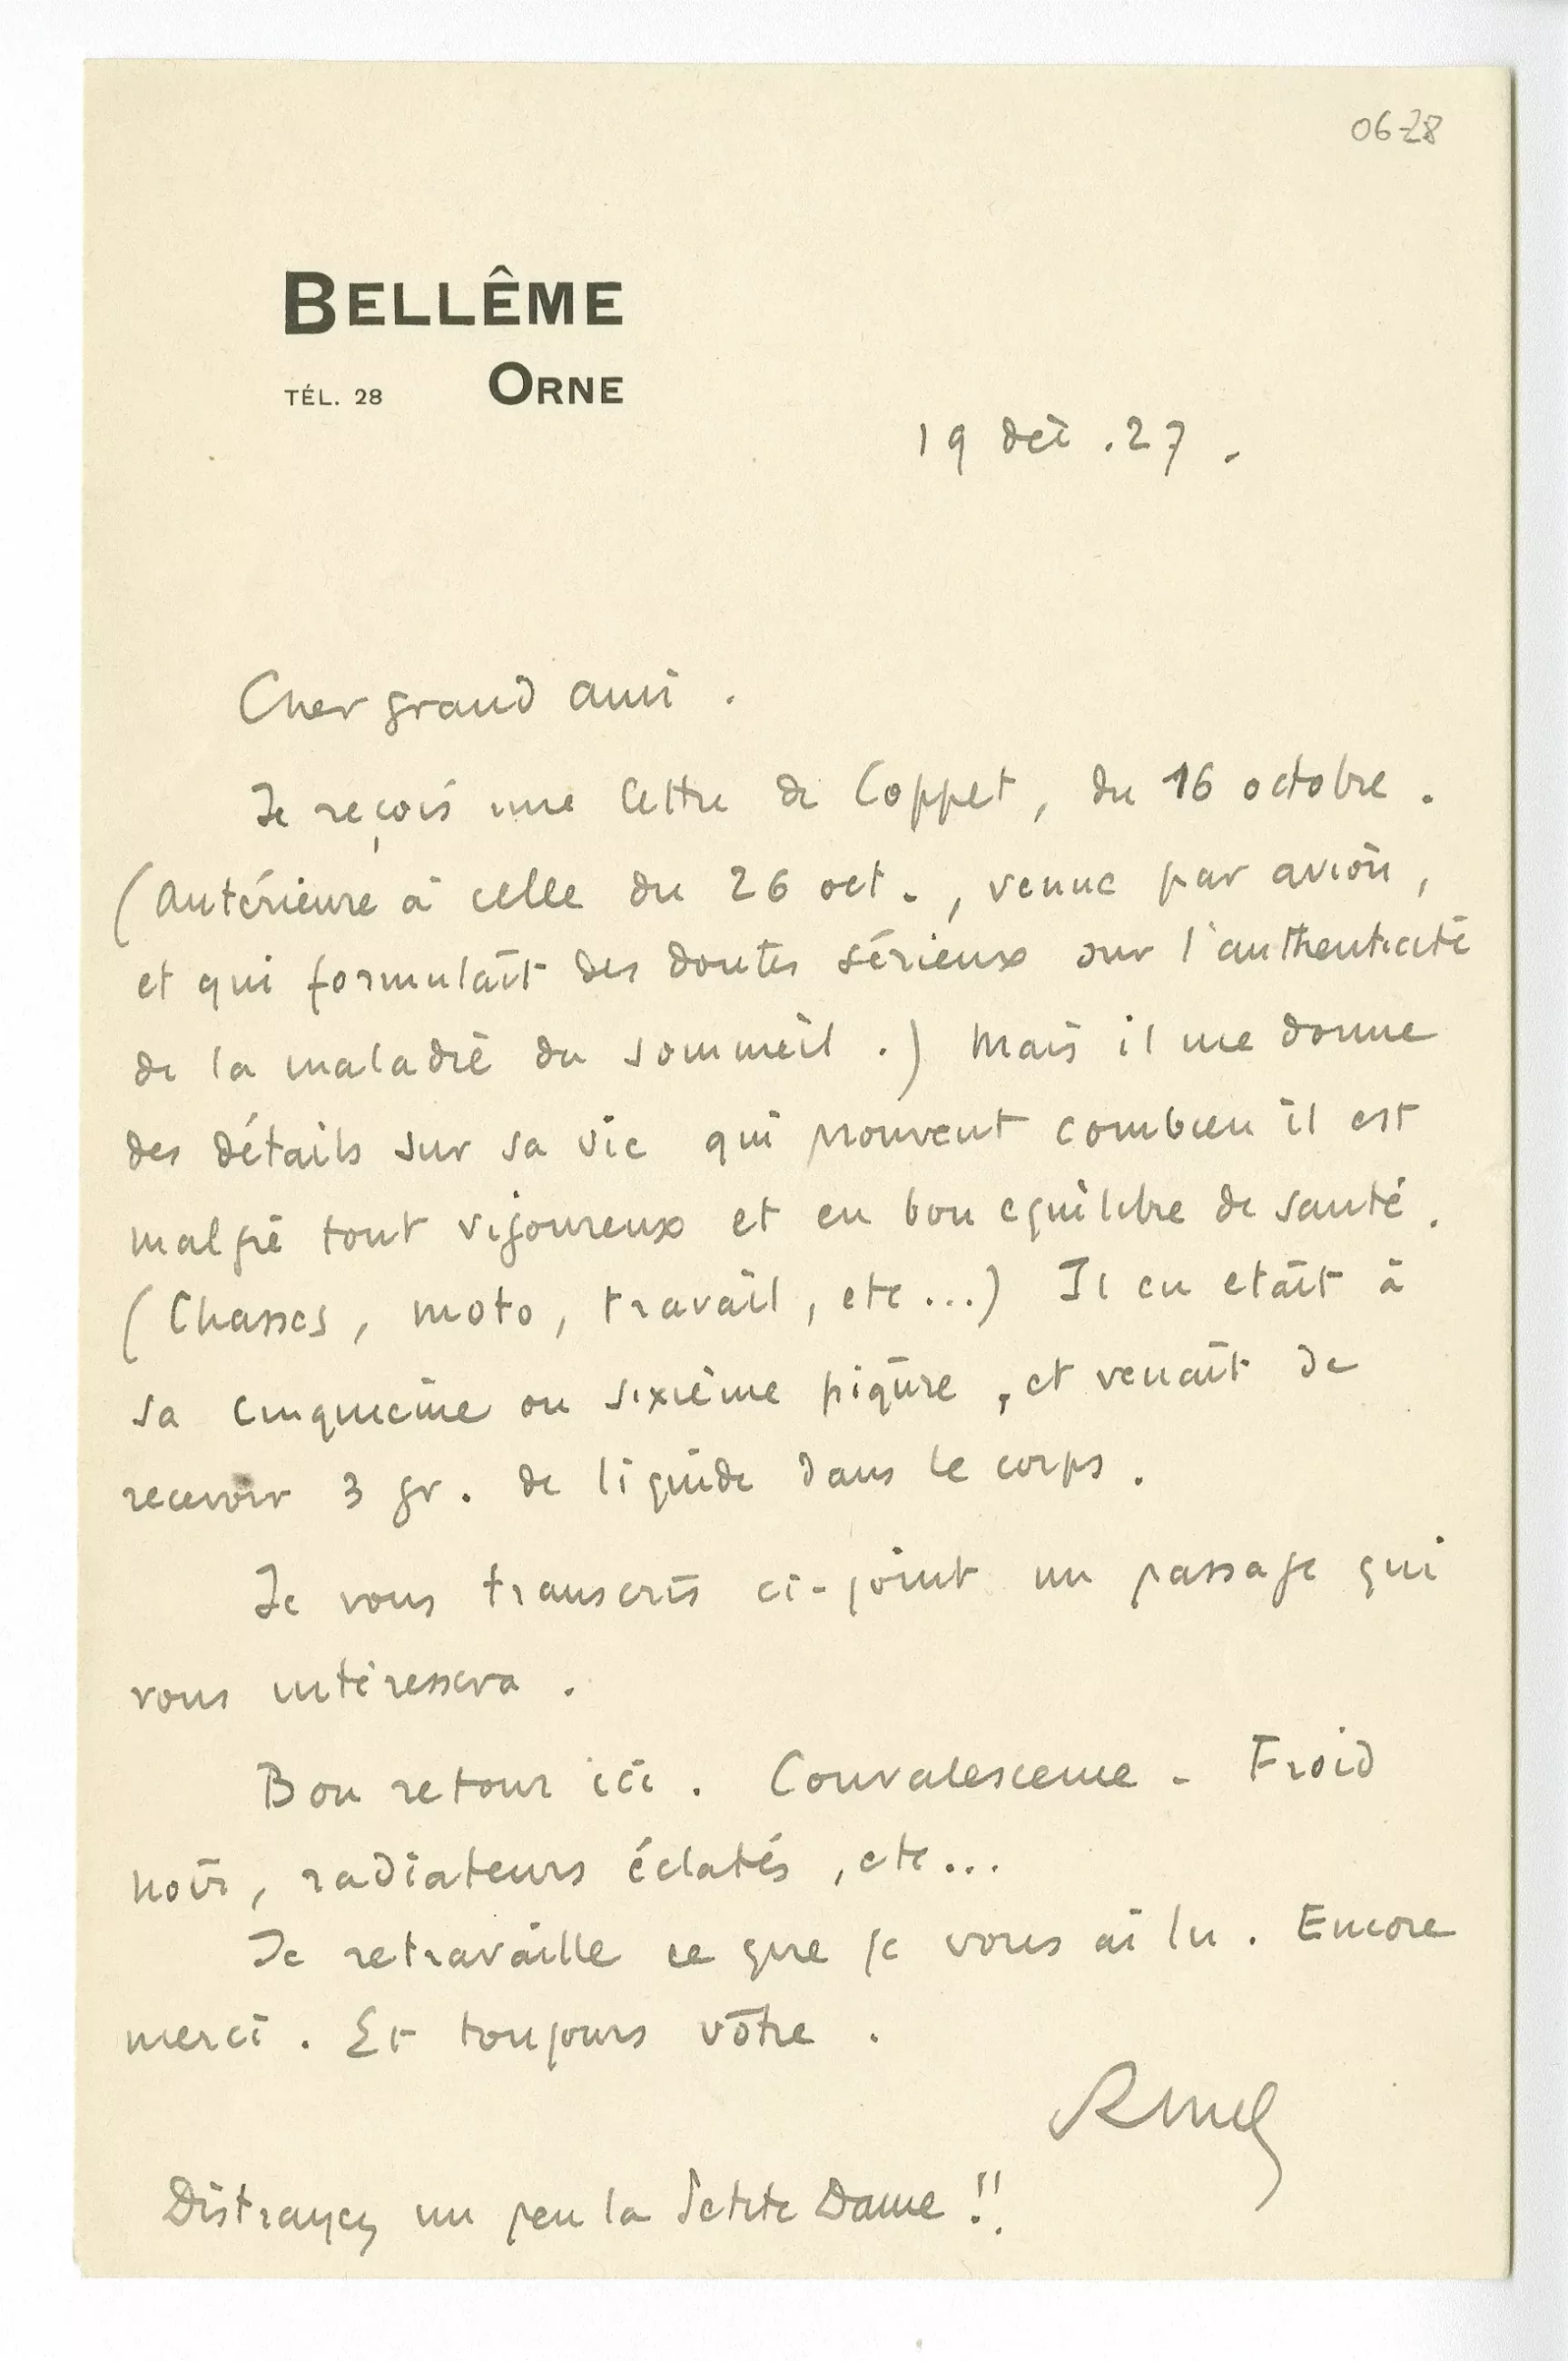 06-28
BELLÊME
TÉL. 28 ORNE
19 déc. 27.
Cher grand ami.
Je reçois une lettre de Coppet, du 16 octobre.
(Antérieure à celle du 26 oct., venue par avion,
et qui formulait des doutes sérieux sur l'authenticité
de la maladie du sommeil.) Mais il me donne
des détails sur sa vie qui prouvent combien il est
malgré tout vigoureux et en bon équilibre de santé.
(Chasses, moto, travail, etc...) Il en était à
sa cinquième ou sixième piqûre, et venait de
recevoir 3 gr. de liquide dans le corps.
Je vous transcris ci-joint un passage qui
vous intéressera.
Bon retour ici. Convalescence - Froid
noir, radiateurs éclatés, etc...
Je retravaille ce que je vous ai lu. Encore
merci. Et toujours vôtre.
Distrayez un peu la Petite Dame !!